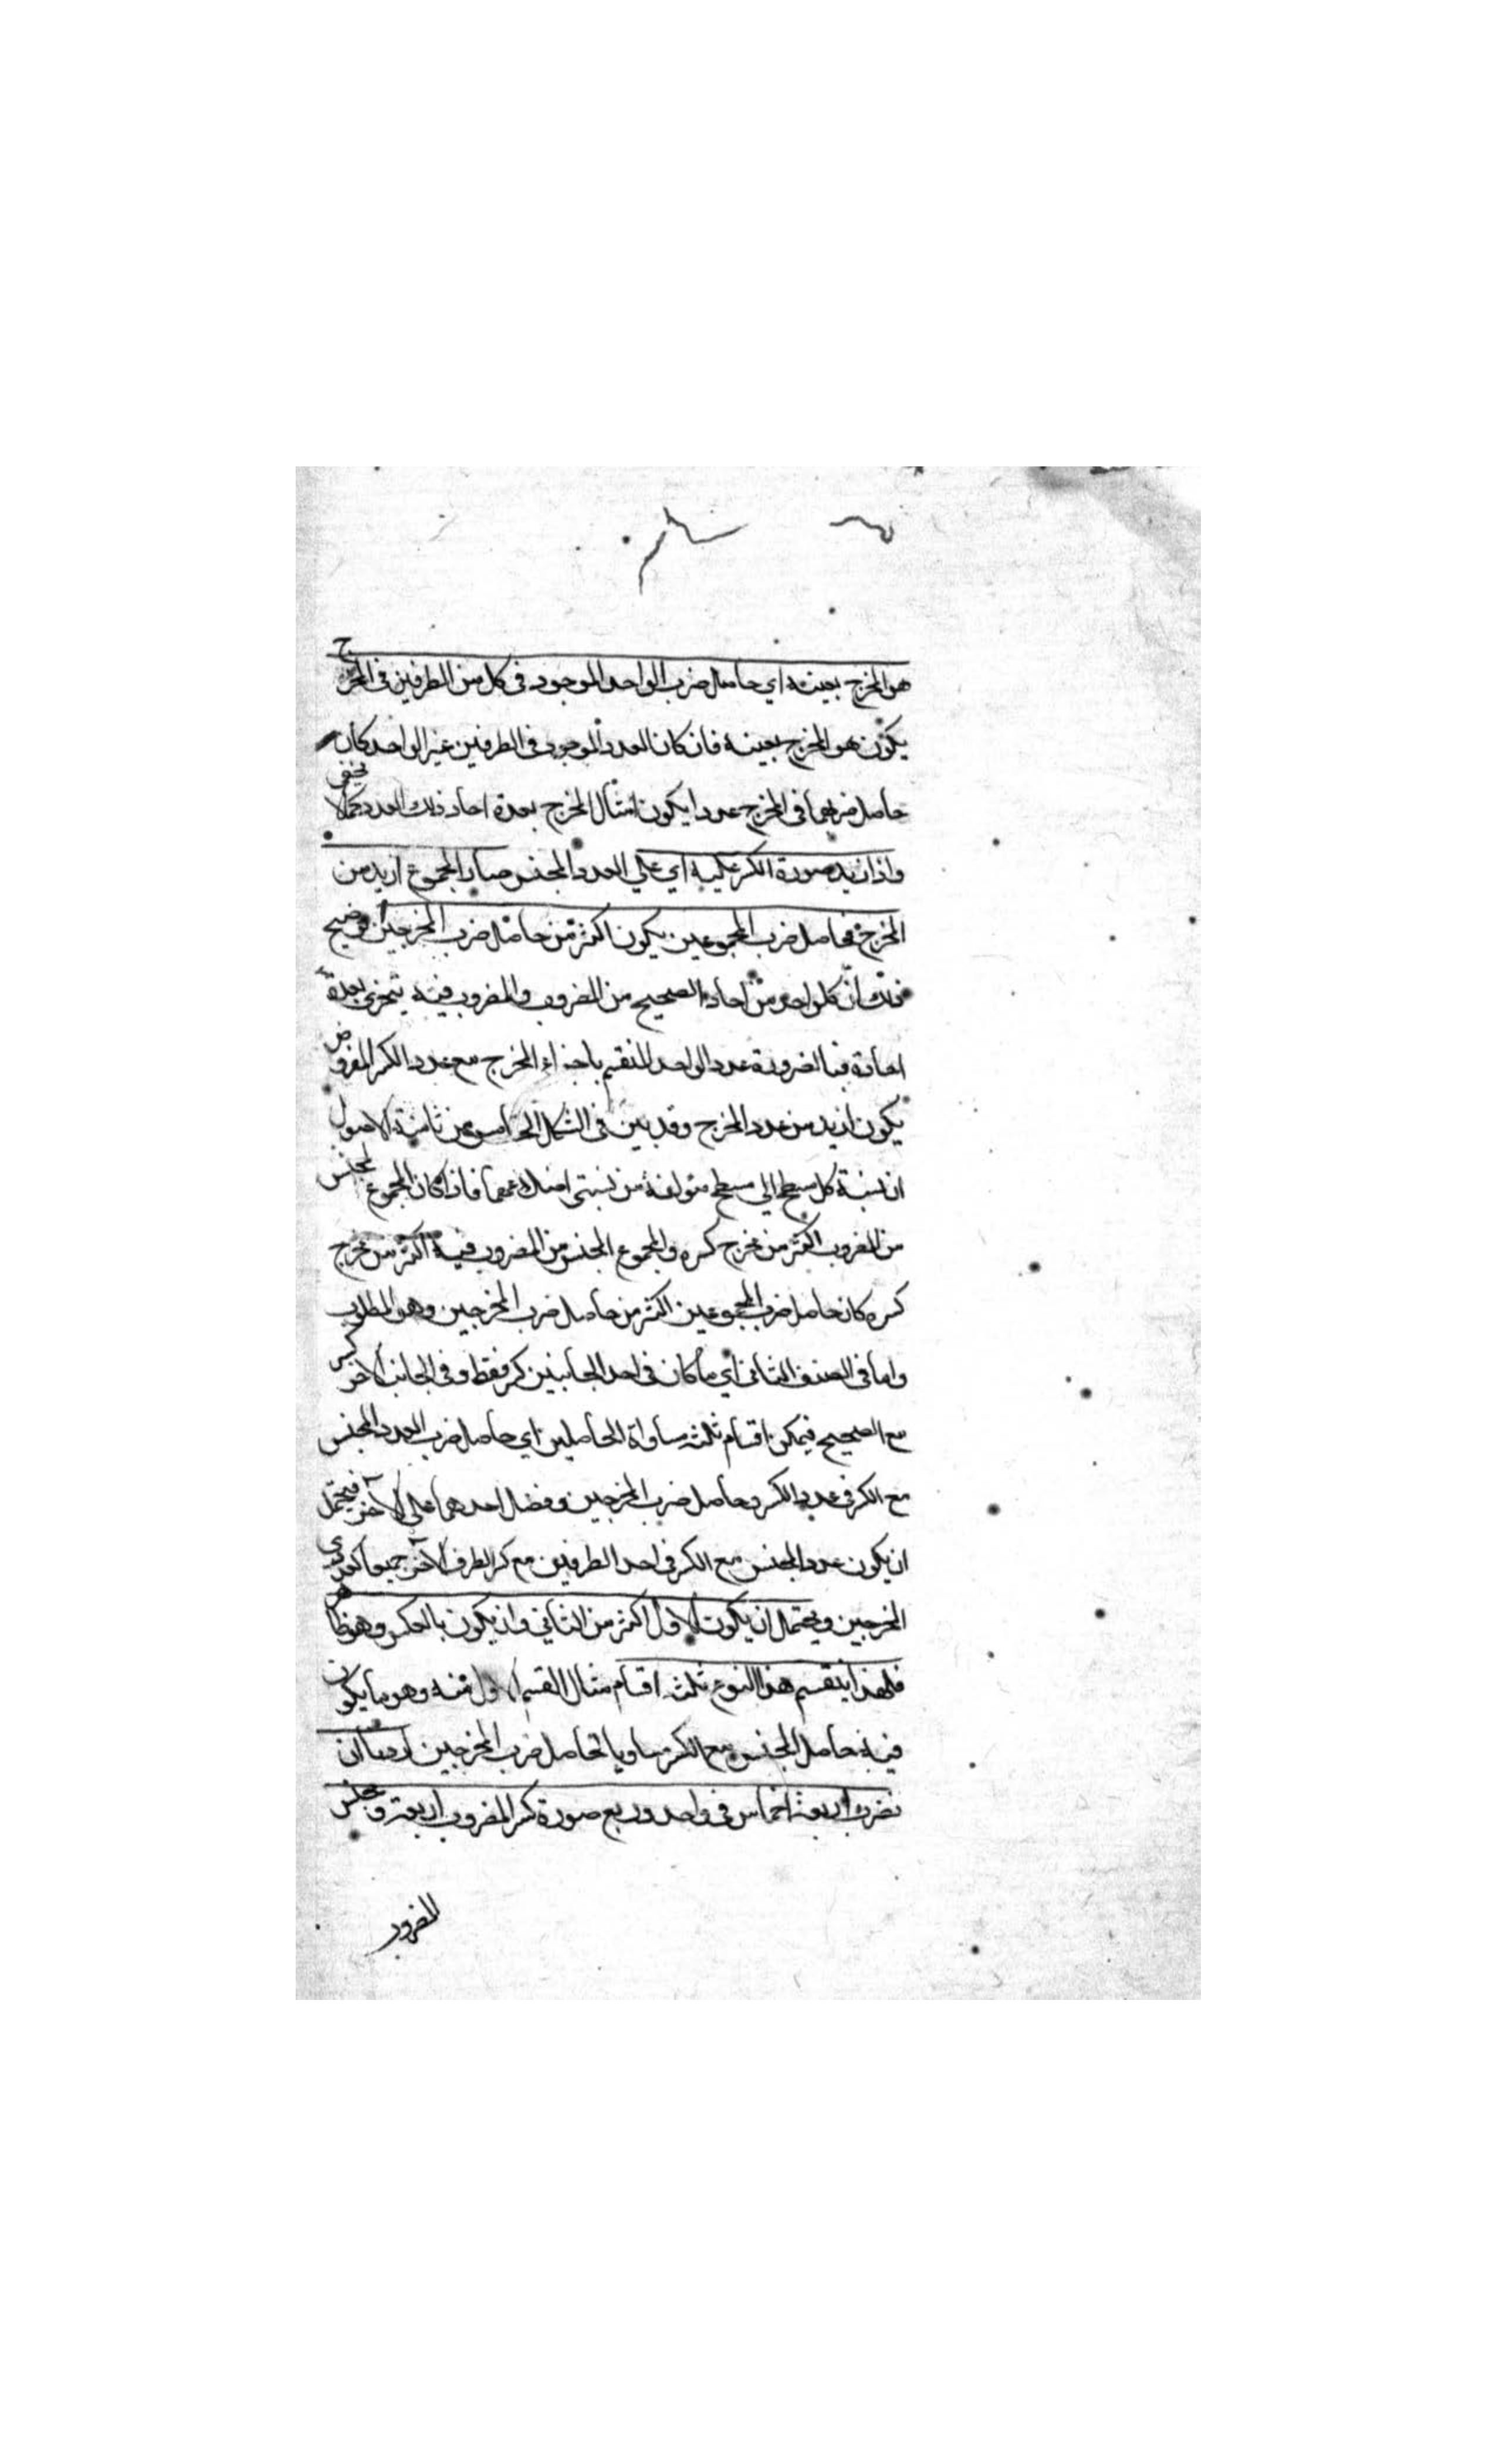 هو المخرج بعينه اي حاصل ضرب الواحد الموجود في كل من الطرفين في المخرج
يكون هو المخرج بعينه فان كان العدد الموجود في الطرفين غير الواحد كان
حاصل ضربهما في المخرج عددا يكون امثال المخرج بعدة احاد ذلك العدد كما لا يخفي
واذا زيد صورة الكسر عليه اي علي العدد المجنس صار المجموع ازيد من
المخرج فحاصل ضرب المجموعين يكون اكثر من حاصل ضرب المخرجين توضيح
ذلك ان كل واحد من احاد الصحيح من المضروب والمضروب فيه يتجزي بعدة
احاده فبالضرورة عدد الواحد المنقسم باجزاء المخرج مع عدد الكسر المفروض
يكون ازيد من عدد المخرج وقد بين في الشكل الخامس من ثامنة الاصول
ان نسبة كل مسطح الي مسطح مؤلفة من نسبتي اضلاعهما فاذا كان المجموع المجنس
من المضروب اكثر من مخرج كسره والمجموع المجنس من المضروب فيه اكثر من مخرج
كسره كان حاصل ضرب المجموعين اكثر من حاصل ضرب المخرجين وهو المطلوب
واما في الصنف الثاني اي ما كان في احد الجانبين كسر فقط وفي الجانب الاخر كسر
مع الصحيح فيمكن اقسام ثلثه مساواة الحاصلين اي حاصل ضرب العدد المجنس
مع الكسر في عدد الكسر وحاصل ضرب المخرجين وفضل احدهما علي الآخر فيحتمل
ان يكون عدد المجنس مع الكسر في احد الطرفين مع كسر الطرف الآخر جميعا
المخرجين ويحتمل ان يكون الاول اكثر من الثاني وان يكون بالعكس وهو ظاهر
فلهذا ينقسم هذا النوع ثلثه اقسام مثال القسم الاول منه وهو ما يكون
فيه حاصل المجنس مع الكسر مساويا لحاصل ضرب المخرجين اردنا ان
نضرب اربعة اخماس في واحد وربع صورة كسر المضروب اربعة ومجنس
المضروب